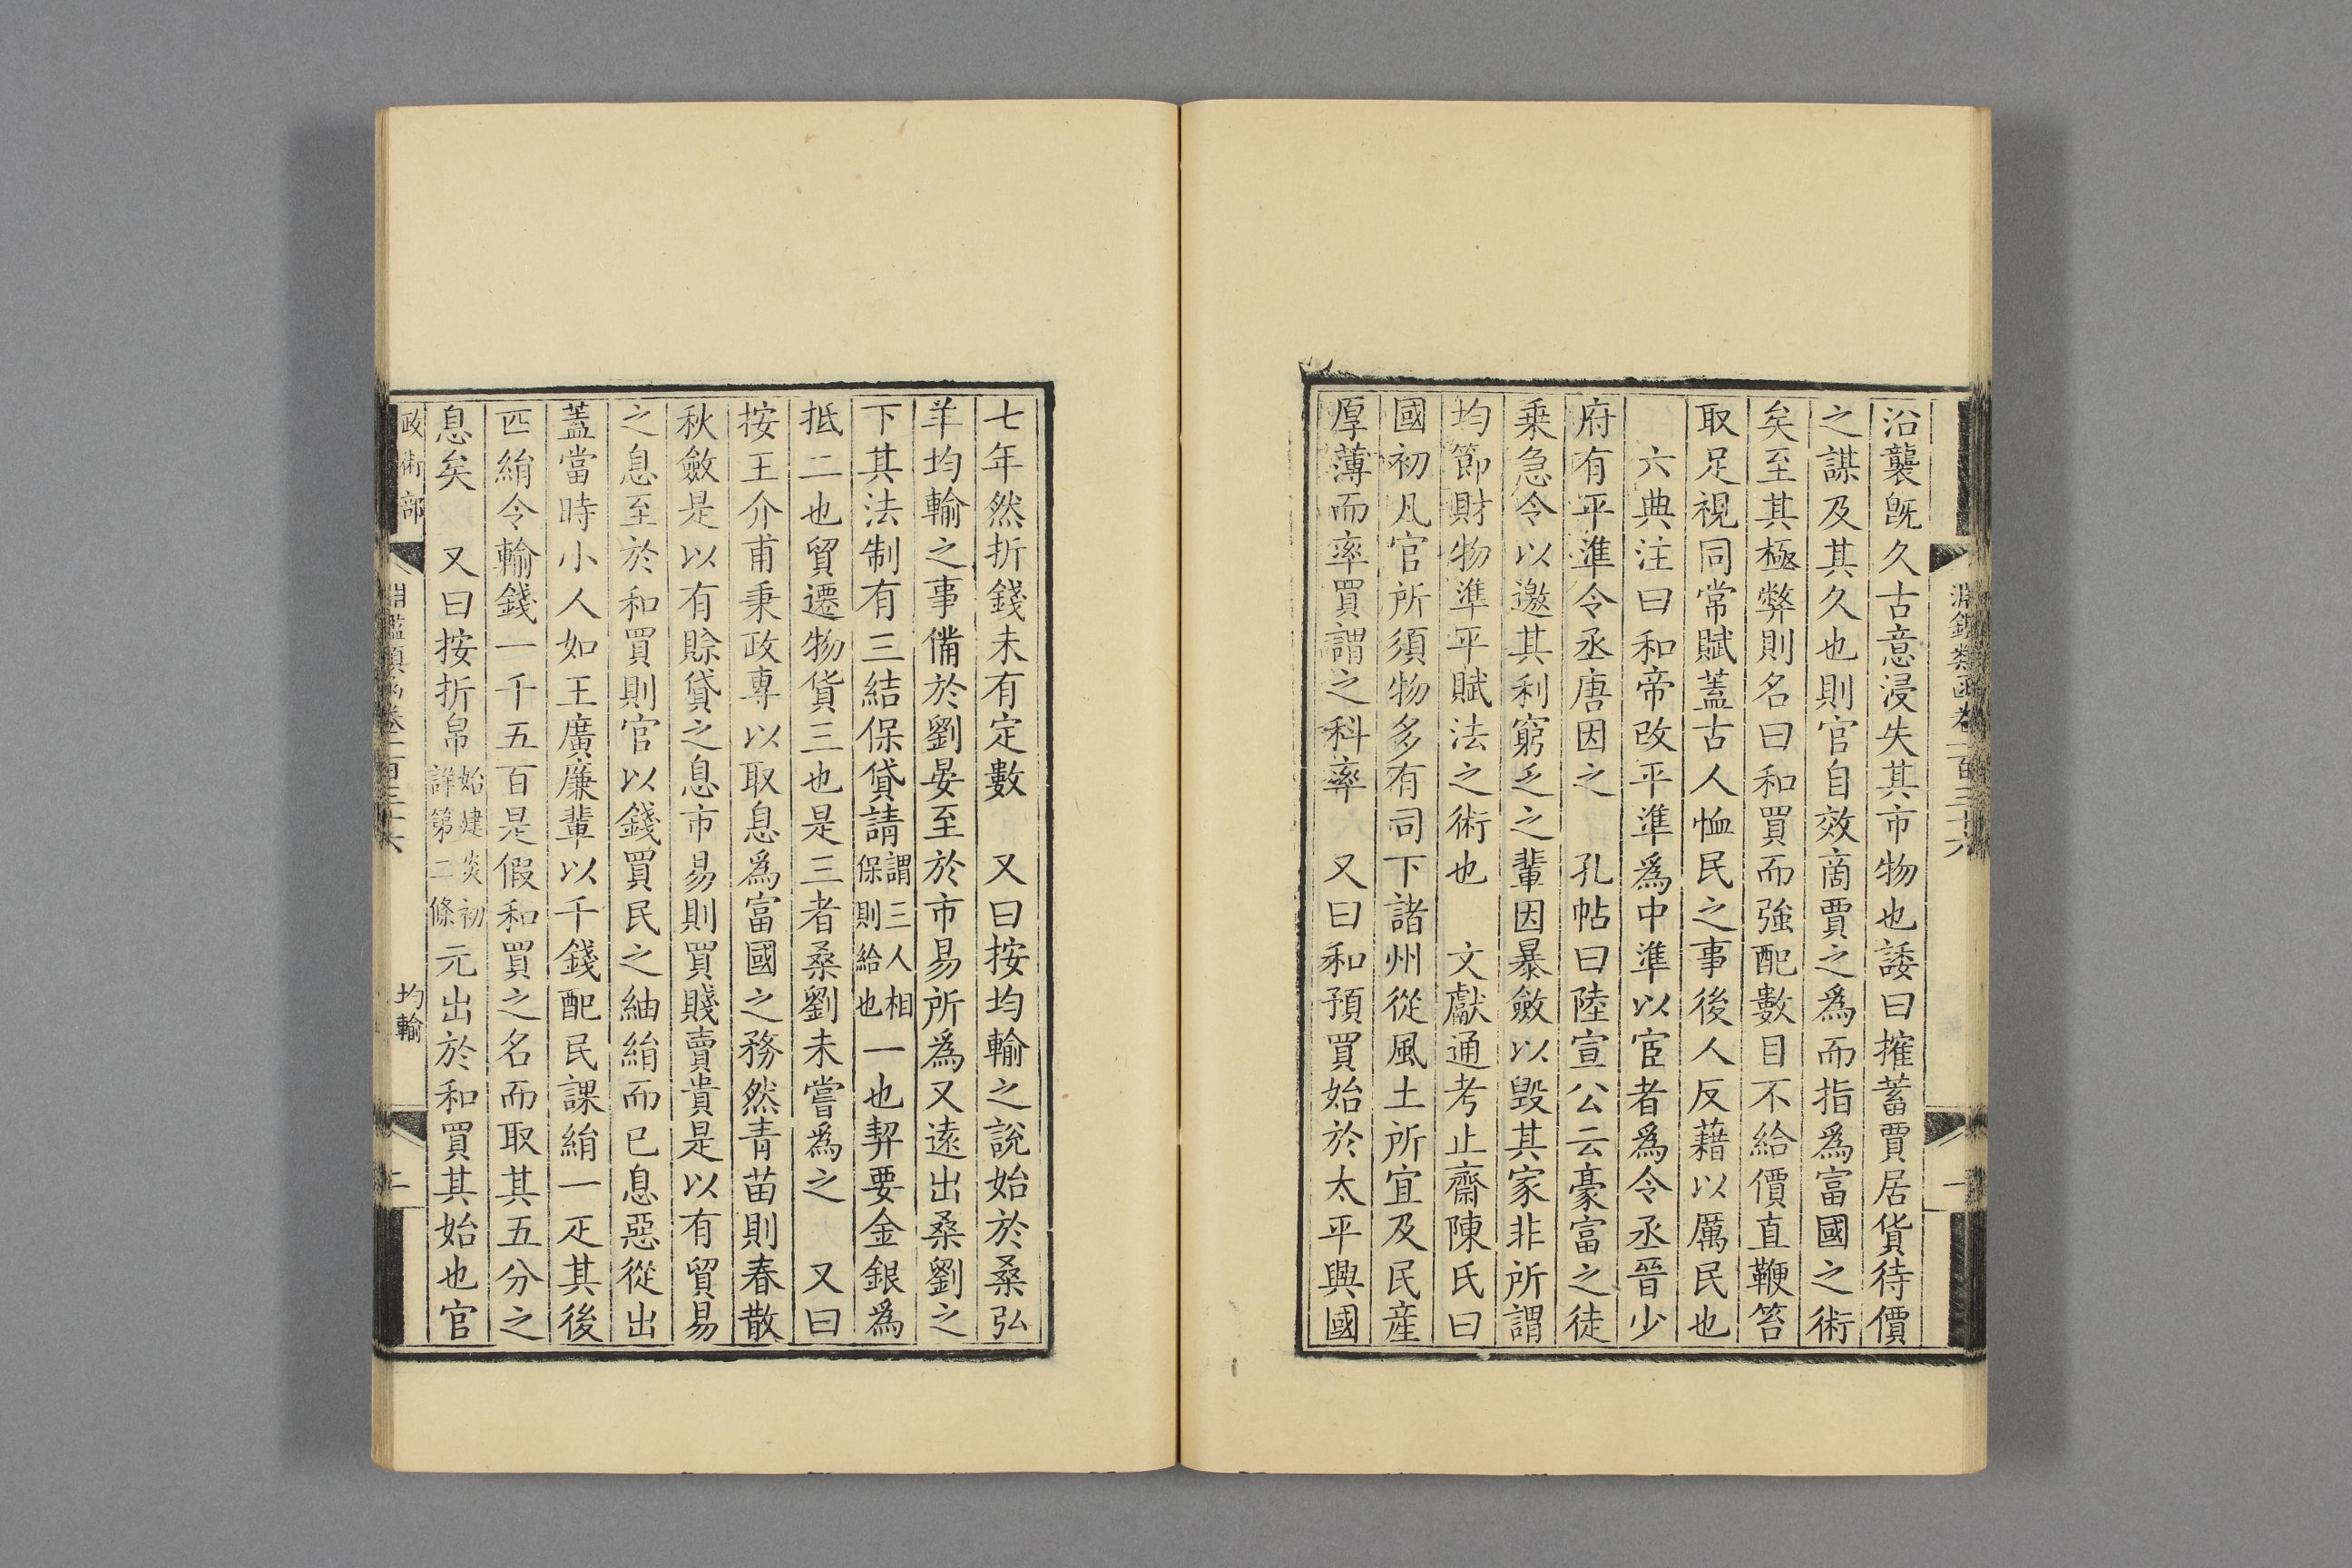 淵鑑類函卷一百三十六
一
沿襲旣久古意浸失其市物也諉曰搉蓄賈居貨待價
之謀及其久也則官自效商賈之爲而指爲富國之術
矣至其極弊則名曰和買而強配數目不給價直鞭笞
取足視同常賦蓋古人恤民之事後人反藉以厲民也
六典注曰和帝改平準爲中準以宦者爲令丞晉少
府有平準令丞唐因之　孔帖曰陸宣公云豪富之徒
乗急令以邀其利窮乏之輩因暴斂以毀其家非所謂
均節財物準平賦法之術也　文獻通考止齋陳氏曰
國初凡官所須物多有司下諸州從風土所宜及民產
厚薄而率買謂之科率　又曰和預買始於太平興國
七年然折錢未有定數　又曰按均輸之說始於桑弘
羊均輸之事備於劉晏至於市易所爲又遠出桑劉之
下其法制有三結保貸請謂三人相保則給也一也契要金銀爲
抵二也貿遷物貨三也是三者桑劉未嘗爲之　又曰
按王介甫秉政專以取息爲富國之務然青苗則春散
秋斂是以有賒貸之息市易則買賤賣貴是以有貿易
之息至於和買則官以錢買民之紬絹而已息惡從出
蓋當時小人如王廣廉輩以千錢配民課絹一疋其後
匹絹令輸錢一千五百是假和買之名而取其五分之
息矣　又曰按折帛始建炎初詳第二條元出於和買其始也官
政術部
淵鑑類函卷一百三十六
均輸
二